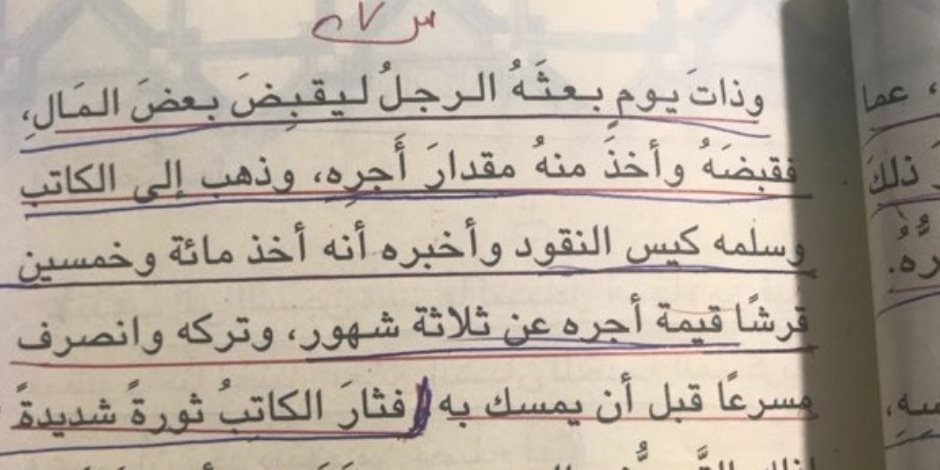 وذاتَ يوم بعثَهُ الرجلُ ليقبِضَ بعضَ المَالِ،
فقبضَهُ وأخذَ منهُ مقدارَ أَجرِه، وذهب إلى الكاتب
وسلمه كيس النقود وأخبره أنه أخذ مائة وخمسين
قرشًا قيمة أجره عن ثلاثة شهور، وتركه وانصرف
مسرعًا قبل أن يمسك به فثارَ الكاتبُ ثورةً شديدةً
، عما
ذلكَ